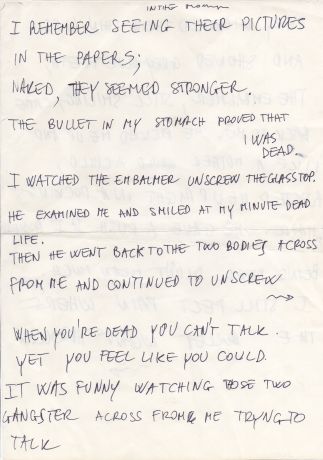 IN THE MORNING
I REMEMBER SEEING THEIR PICTURES
IN THE PAPERS;
NAKED THEY SEEMED STRONGER.
THE BULLET IN MY STOMACH PROVED THAT
I WAS
DEAD.
I WATCHED THE EMBALMER UNSCREW THE GLASS TOP.
HE EXAMINED ME AND SMILED AT MY MINUTE DEAD
LIFE.
THEN HE WENT BACK TO THE TWO BODIES ACROSS
FROM ME AND CONTINUED TO UNSCREW
WHEN YOU'RE DEAD YOU CAN'T TALK.
YET YOU FEEL LIKE YOU COULD.
IT WAS FUNNY WATCHING THOSE TWO
GANGSTER ACROSS FROM ME TRYNG TO
TALK